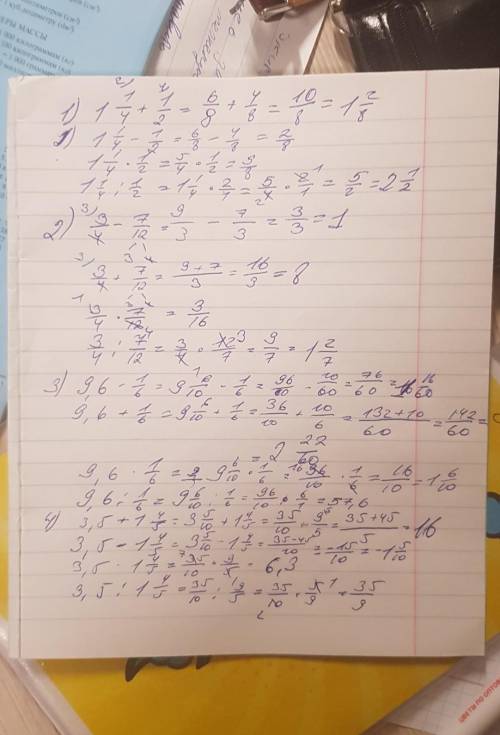 1) 1 1/4 + 1/2 = 6/8 + 4/8 = 10/8 = 1 2/8
1 1/4 - 1/2 = 6/8 - 4/8 = 2/8
1 1/4 · 1/2 = 5/4 · 1/2 = 5/8
1 1/4 : 1/2 = 1 1/4 · 2/1 = 5/4 · 2/1 = 5/2 = 2 1/2
2) 3/4 - 7/12 = 9/3 - 7/3 = 3/3 = 1
3/4 + 7/12 = 9+7/3 = 16/3 = 8
3/4 · 7/12 = 3/16
3/4 : 7/12 = 3/4 · 12/7 = 9/7 = 1 2/7
3) 9,6 - 1/6 = 9 6/10 - 1/6 = 96/10 - 10/60 = 76/60 = 16/60
9,6 + 1/6 = 9 6/10 + 1/6 = 36/10 + 10/6 = 132+10/60 = 142/60 =
= 2 22/60
9,6 · 1/6 = 9 6/10 · 1/6 = 96/10 · 1/6 = 16/10 = 1 6/10
9,6 : 1/6 = 9 6/10 : 1/6 = 96/10 · 6/1 = 57,6
4) 3,5 + 1 4/5 = 3 5/10 + 1 4/5 = 35/10 + 9/5 = 35+45/5 = 16
3,5 - 1 4/5 = 3 5/10 - 1 4/5 = 35-45/10 = -15/10 = -1 5/10
3,5 · 1 4/5 = 35/10 · 9/5 = 6,3
3,5 : 1 4/5 = 35/10 : 9/5 = 35/10 · 5/9 = 35/9
ЕРЫ МАССЫ
ЦВЕТЫ ПО ОПТОВ